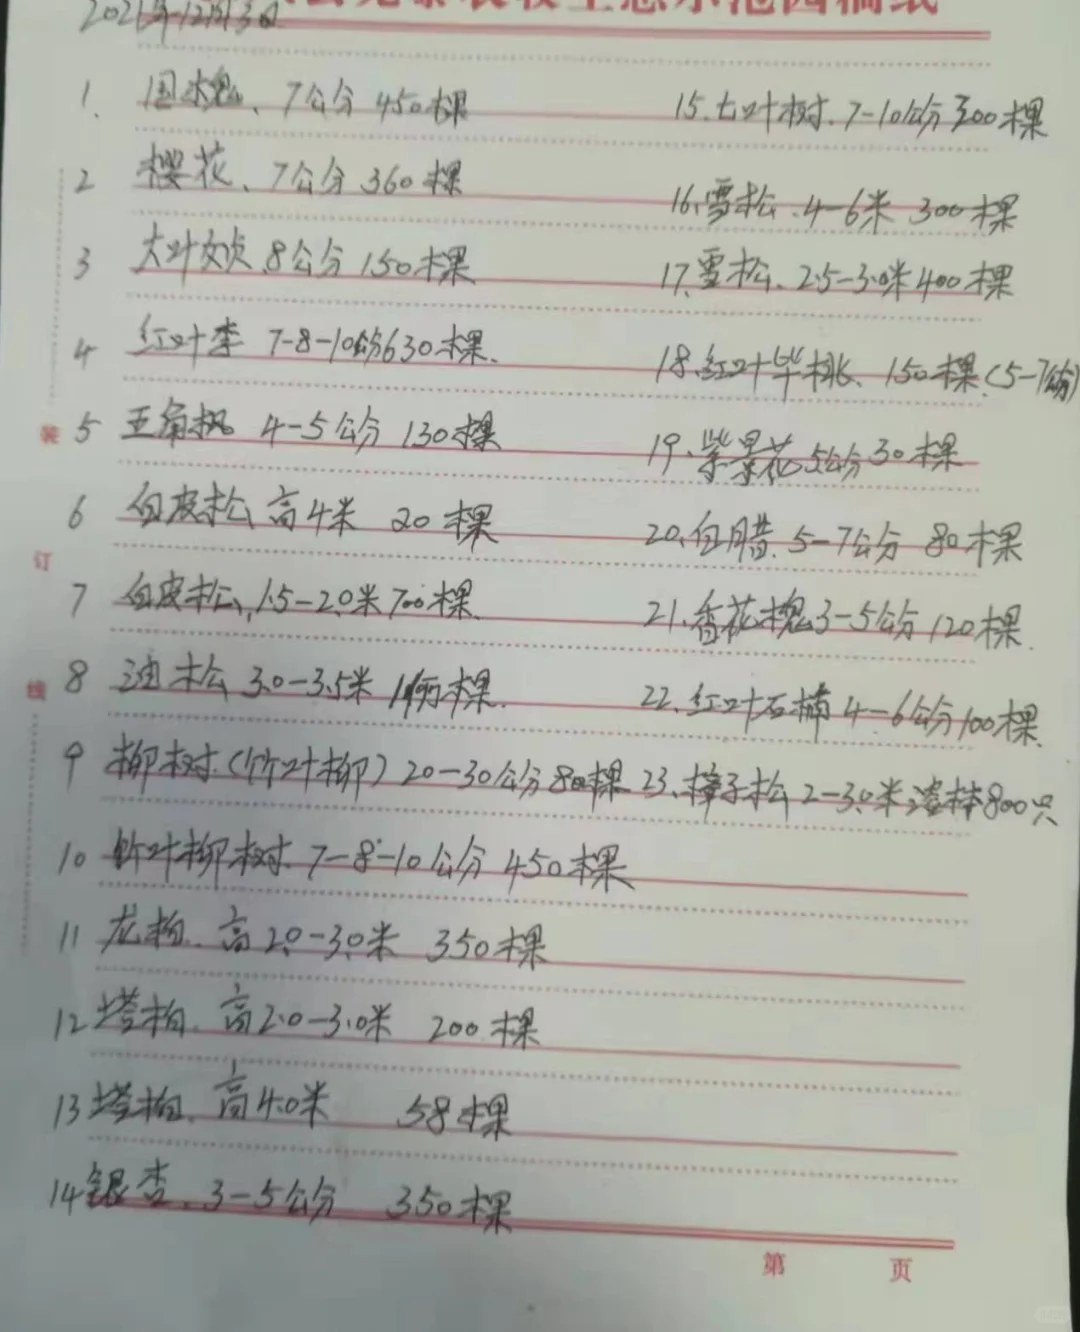 2021年12月3日
1. 国槐、7公分 450棵
2 樱花、7公分 360棵
3 大叶女贞 8公分 150棵
4 红叶李 7-8-10公分630棵.
5 五角枫 4-5公分 130棵
6 白皮松 高4米 20棵
7 白皮松、1.5-2.0米700棵
8 油松 3.0-3.5米 棵.
9 柳树.(竹叶柳) 20-30公分80棵
10 竹叶柳树. 7-8-10公分 450棵
11 龙柏. 高2.0-3.0米 350棵
12 塔柏. 高2.0-3.0米 200棵
13 塔柏. 高4.0米 58棵
14 银杏. 3-5公分 350棵
15. 七叶树. 7-10公分 300棵
16、雪松. 4-6米 300棵
17. 雪松、2.5-3.0米400棵
18. 红叶毕桃、150棵.(5-7公分)
19、紫景花 5公分 30棵
20、白腊. 5-7公分 80棵
21. 香花槐3-5公分 120棵.
22. 红叶石楠 4-6公分100棵.
23. 樟子松 2-3.0米 800只
装
订
线
第 页